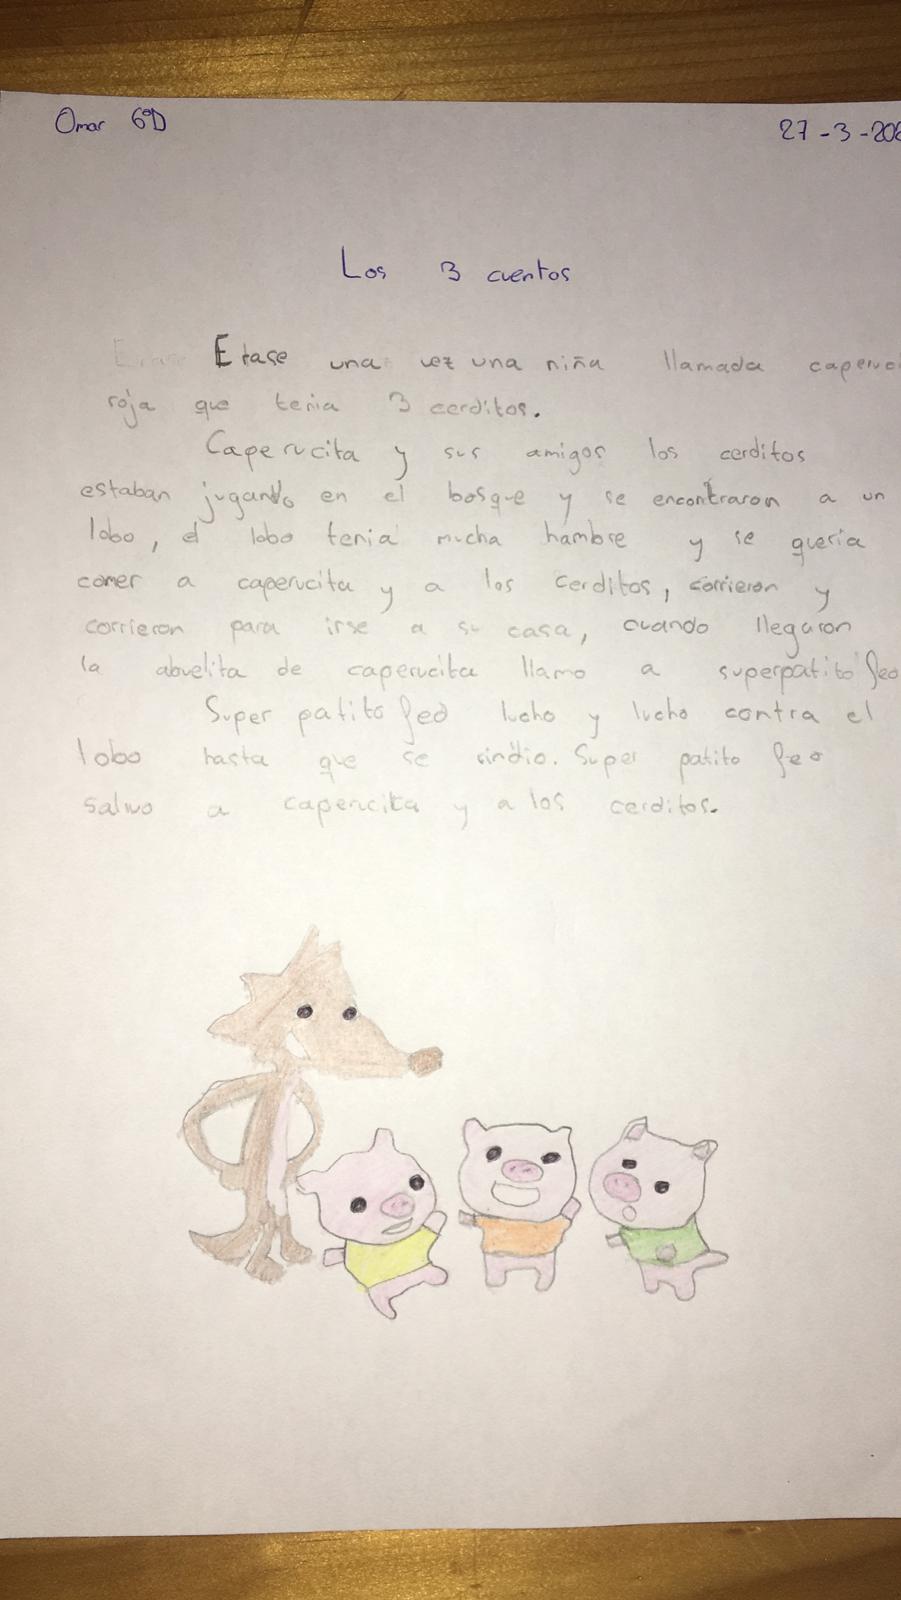 Omar 6ºD
27-3-202
Los 3 cuentos
Erase Erase una vez una niña llamada caperuci
roja que tenia 3 cerditos.
Caperucita y sus amigos los cerditos
estaban jugando en el bosque y se encontraron a un
lobo, el lobo tenia mucha hambre y se queria
comer a caperucita y a los cerditos, corrieron y
corrieron para irse a su casa, cuando llegaron
la abuelita de caperucita llamo a superpatito feo
Super patito feo lucho y lucho contra el
lobo hasta que se rindio. Super patito feo
salvo a caperucita y a los cerditos.